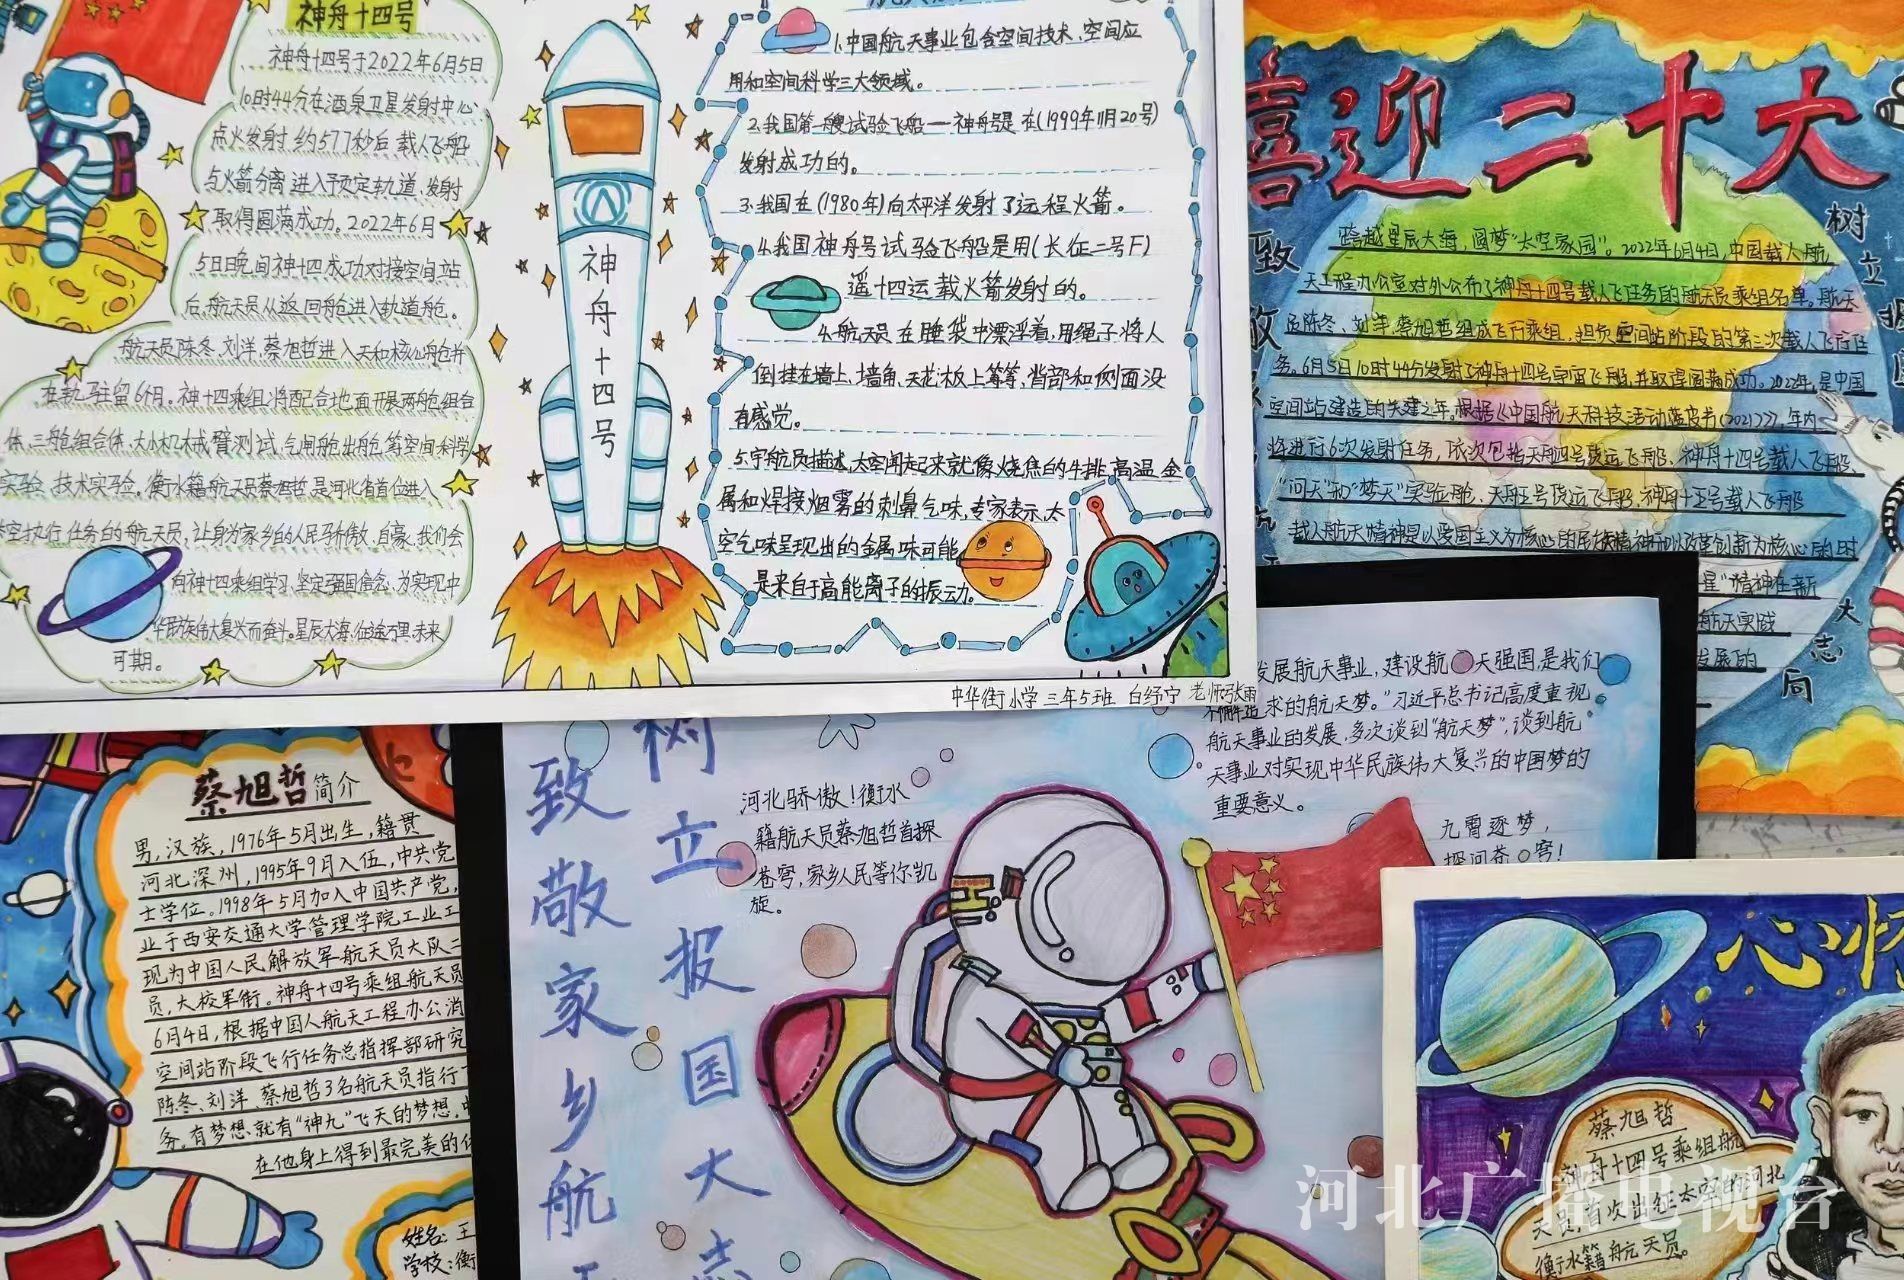 神舟十四号
神舟十四号于2022年6月5日
10时44分在酒泉卫星发射中心
点火发射,约577秒后,载人飞船
与火箭分离,进入预定轨道,发射
取得圆满成功。2022年6月
5日晚间神十四成功对接空间站
后,航天员从返回舱进入轨道舱。
航天员陈冬、刘洋、蔡旭哲进入天和核心舱并
在轨驻留6个月。神十四乘组将配合地面开展两舱组合
体、三舱组合体、大小机械臂测试,气闸舱出舱等空间科学
实验、技术实验。衡水籍航天员蔡旭哲是河北省首位进入
太空执行任务的航天员,让身为家乡的人民骄傲、自豪。我们会
向神十四乘组学习,坚定强国信念,为实现中
华民族伟大复兴而奋斗。星辰大海,征途不里,未来
可期。
神舟十四号
1.中国航天事业包含空间技术、空间应
用和空间科学三大领域。
2.我国第一艘试验飞船一神舟号是在(1999年11月20号)
发射成功的。
3.我国在(1980年)向太平洋发射了远程火箭。
4.我国神舟号试验飞船是用(长征二号F)
遥十四运载火箭发射的。
4.航天员在睡袋中漂浮着,用绳子将人
倒挂在墙上、墙角、天花板上等等,背部和侧面没
有感觉。
5.宇航员描述,太空闻起来就像烧焦的牛排、高温金
属和焊接烟雾的刺鼻气味,专家表示,太
空气味呈现出的金属味可能
是来自于高能离子的振动。
中华街小学 三年5班 白纾宁 老师:张雨
喜迎二十大
树立报国大志向
跨越星辰大海,圆梦“太空家园”。2022年6月4日,中国载人航
天工程办公室对外公布了神舟十四号载人飞行任务的航天员乘组名单。航天
员陈冬、刘洋、蔡旭哲组成飞行乘组,担负空间站阶段的第三次载人飞行任
务。6月5日10时44分发射了神舟十四号宇宙飞船,并取得圆满成功。2022年,是中国
空间站建造的关键之年。根据《中国航天科技活动蓝皮书(2021)》,年内
将进行6次发射任务,依次包括天舟四号货运飞船、神舟十四号载人飞船、
“问天”和“梦天”实验舱、天舟五号货运飞船、神舟十五号载人飞船
载人航天精神是以爱国主义为核心的民族精神和以改革创新为核心的时
星”精神在新
航天实践
发展的
蔡旭哲简介
男,汉族,1976年5月出生,籍贯
河北深州,1995年9月入伍,中共党
士学位。1998年5月加入中国共产党,
业于西安交通大学管理学院工业工
现为中国人民解放军航天员大队二
员,大校军衔。神舟十四号乘组航天员
6月4日,根据中国人航天工程办公消
空间站阶段飞行任务总指挥部研究
陈冬、刘洋、蔡旭哲3名航天员指行
务。有梦想就有“神九”飞天的梦想,
在他身上得到最完美的
姓名:王
学校:衡
致敬家乡航
树立报国大志
河北骄傲!衡水
籍航天员蔡旭哲首探
苍穹,家乡人民等你凯
旋。
发展航天事业,建设航天强国,是我们
不懈追求的航天梦。”习近平总书记高度重视
航天事业的发展,多次谈到“航天梦”,谈到航
天事业对实现中华民族伟大复兴的中国梦的
重要意义。
九霄逐梦,
探问苍穹!
心怀
蔡旭哲
神舟十四号乘组航
天员,首次出征太空的河北
衡水籍航天员。
河北广播电视台